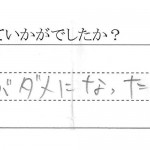 ていかがでしたか？
がダメになった